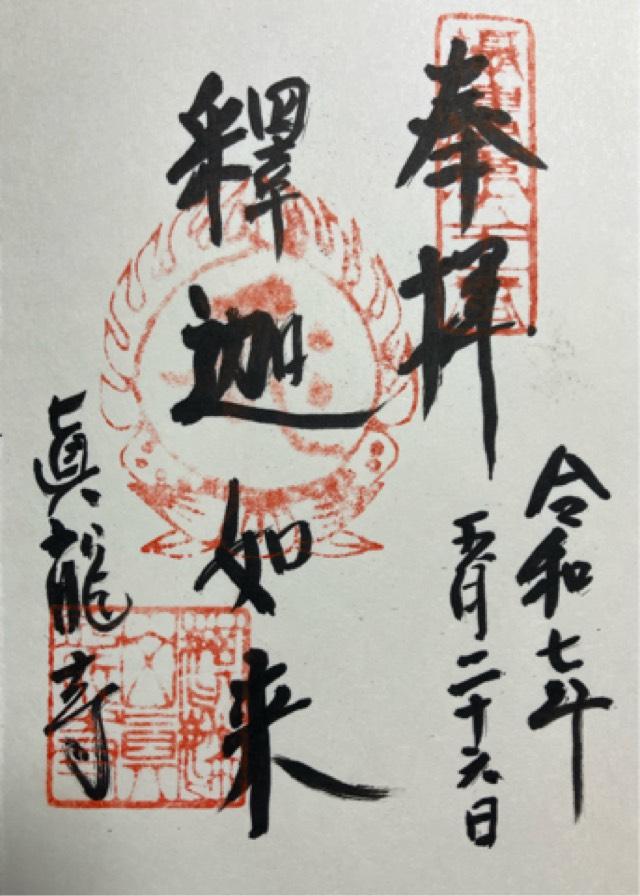 奉拝
令和七年
五月二十六日
釋迦如来
眞龍寺